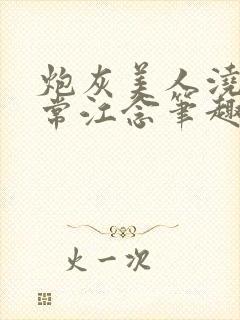 炮灰美人浇
常江念笔趣
火一次